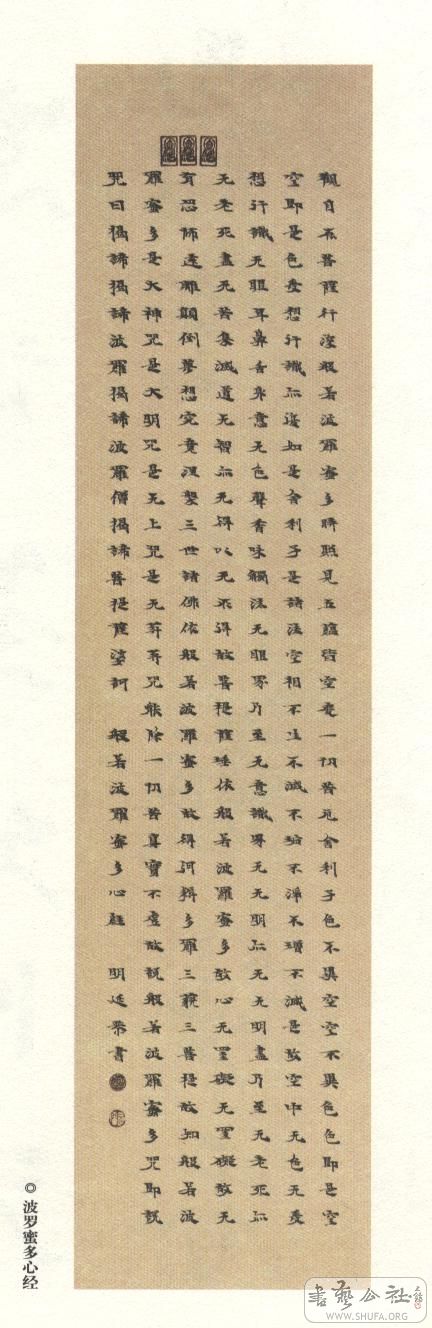 觀自在菩薩行深般若波羅蜜多時照見五蘊皆空度一切苦厄舍利子色不異空空不異色色即是空
空即是色受想行識亦復如是舍利子是諸法空相不生不滅不垢不淨不增不減是故空中无色无受
想行識无眼耳鼻舌身意无色聲香味觸法无眼界乃至无意識界无无明亦无无明盡乃至无老死亦
无老死盡无苦集滅道无智亦无得以无所得故菩提薩埵依般若波羅蜜多故心无罣礙无罣礙故无
有恐怖遠離顛倒夢想究竟涅槃三世諸佛依般若波羅蜜多故得阿耨多羅三藐三菩提故知般若波
羅蜜多是大神咒是大明咒是无上咒是无等等咒能除一切苦真實不虛故說般若波羅蜜多咒即說
咒曰揭諦揭諦波羅揭諦波羅僧揭諦菩提薩婆訶 般若波羅蜜多心經 明延書
◎波罗蜜多心经
書藝公社
WWW.SHUFA.ORG